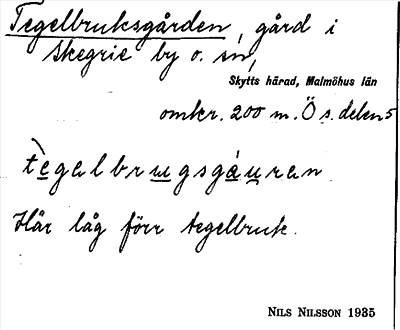 Tegelbruksgården, gård i
Skegrie by o. sn,
Skytts härad, Malmöhus län
omkr. 200 m. Ö s. delen
tegalbrugsgáuran
Här låg förr tegelbruk.
NILS NILSSON 1935